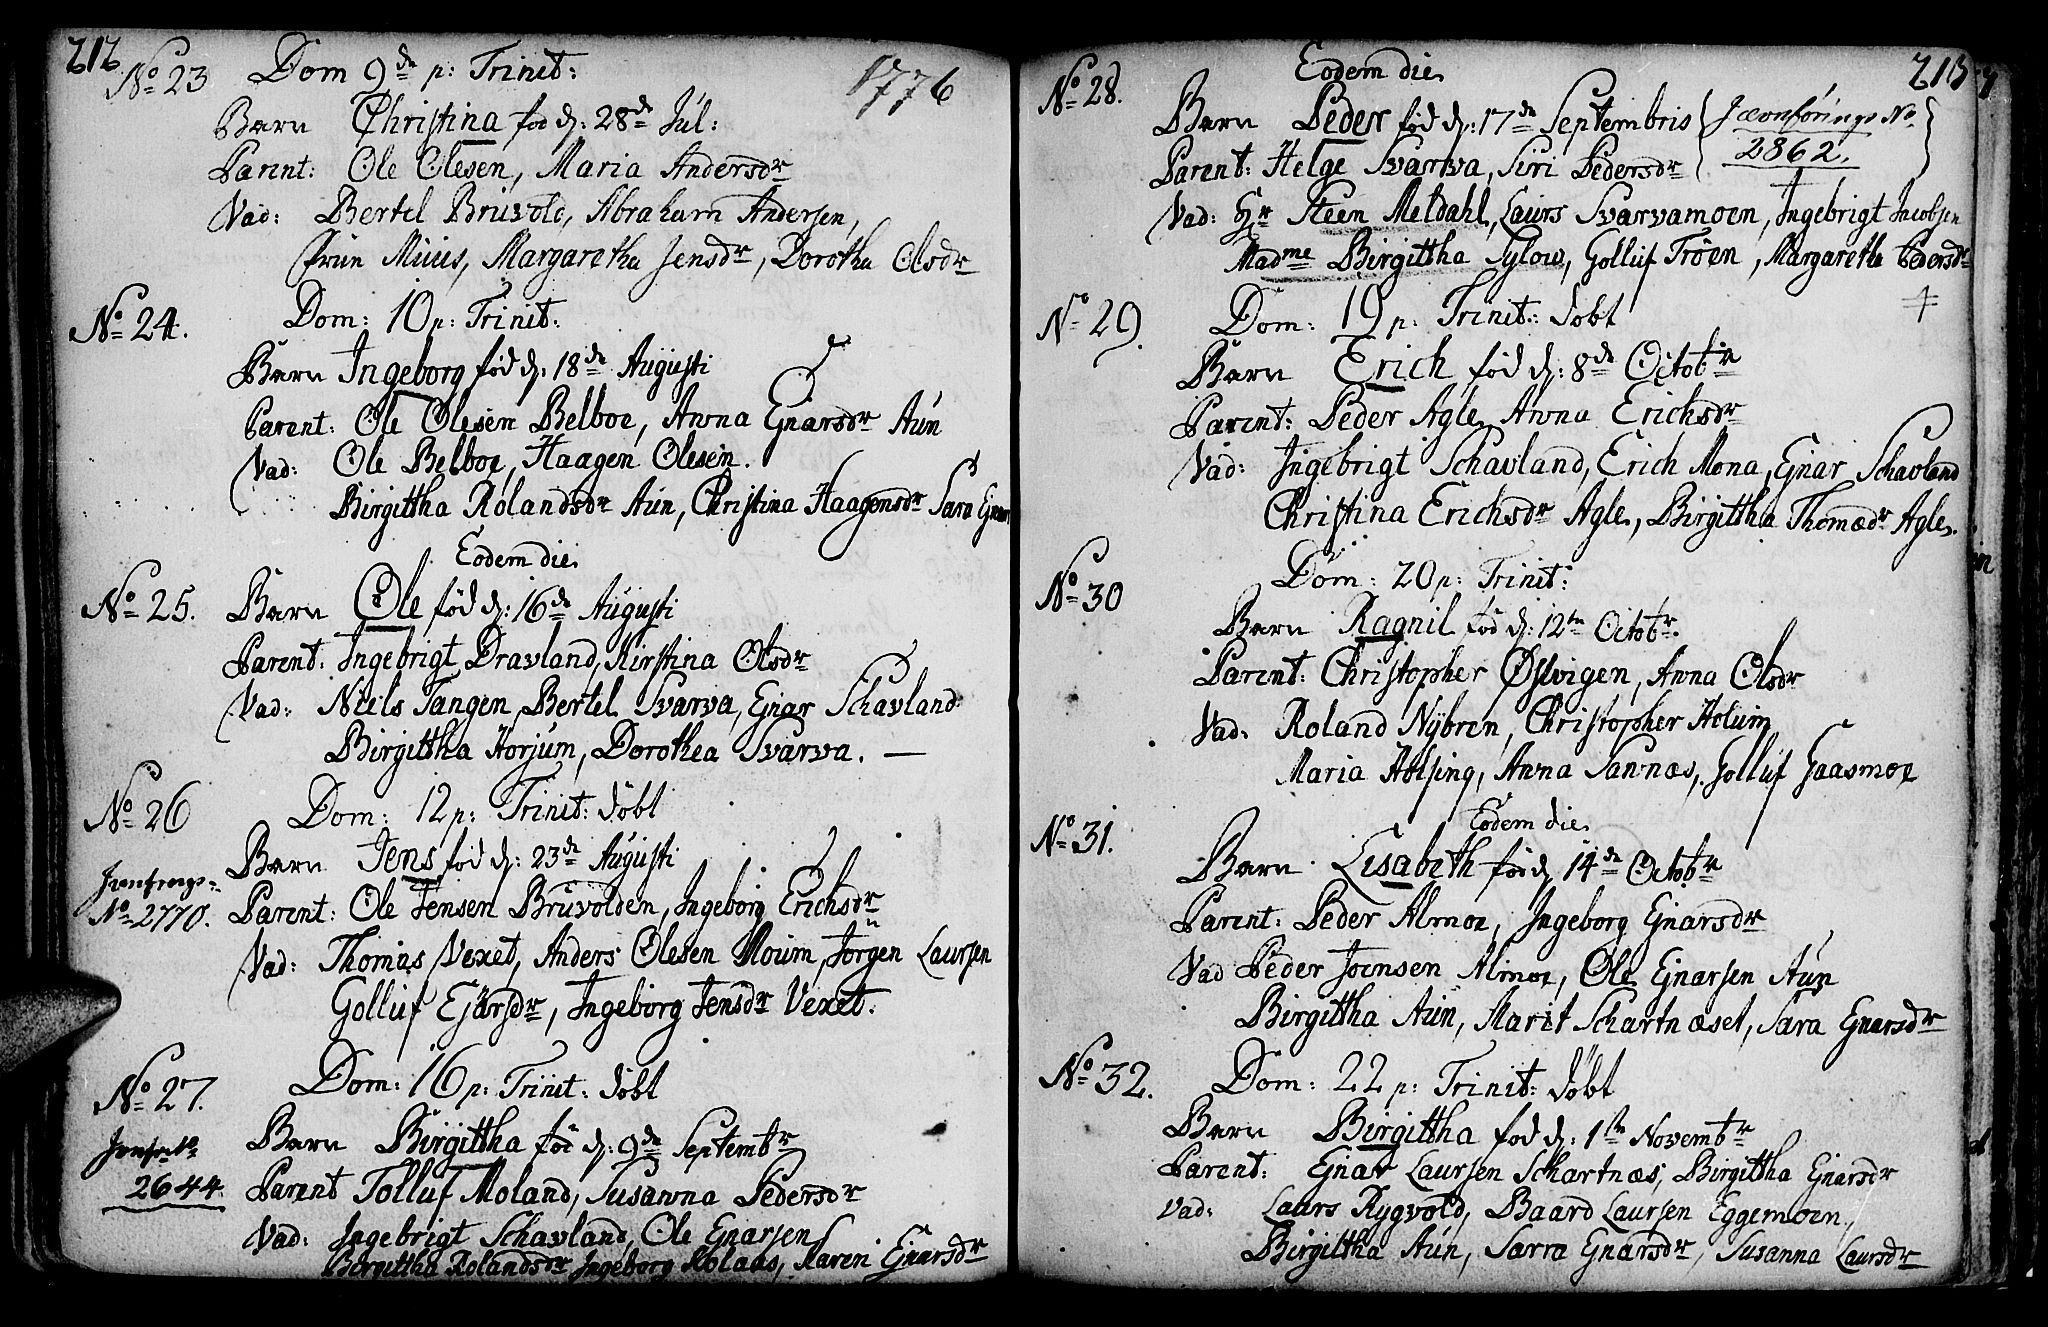 212
No 23 Dom 9de p: Trinit: 1776
Barn Christina fød d: 28de Jul:
Parent: Ole Olesen, Maria Andersdr
Vad: Bertel Bruvold, Abraham Andersen,
Frun Muus, Margaretha Jensdr, Dorothea Olsdr
No 24. Dom: 10 p: Trinit:
Barn Ingeborg fød d: 18de Augusti
Parent: Ole Olesen Belboe, Anna Ejnarsdr Aun
Vad: Ole Belboe, Haagen Olesen.
Birgittha Rolandsdr Aun, Christina Haagensdr Sara Ejnar
Eodem die
No 25. Barn Ole fød d: 16de Augusti
Parent: Ingebrigt Dravland, Kirstina Olsdr
Vad: Niels Tangen, Bertel Svarva, Ejnar Schavland
Birgittha Horjum, Dorothea Svarva. —
No 26 Dom: 12 p: Trinit: døbt
Barn Jens fød d: 23de Augusti
No 2770. Parent: Ole Jensen Bruvolden, Ingeborg Erichsdr
Vad: Thomas Vexet, Anders Olesen Moum, Jørgen Laursen
Golluf Ejarsdr, Ingeborg Jensdr Vexet.
No 27. Dom: 16 p: Trinit: døbt
Barn Birgittha fød d: 9de Septembr
2644. Parent Tolluf Moland, Susanna Pedersdr
Vad: Ingebrigt Schavland, Ole Ejnarsen
Birgittha Rolandsdr Ingeborg Rolaas, Karen Ejnarsdr
213
No 28. Eodem die
Barn Peder fød d: 17de Septembris (Jævnførings No.
2862.)
Parent: Helge Svarva, Siri Pedersdr
Vad: Hr Steen Meldahl, Laurs Svarvamoen, Ingebrigt Jacobsen
Madme Birgittha Sylow, Golluf Trøen, Margaretha Pedersdr
No 29. Dom: 19 p: Trinit: døbt
Barn Erich fød d: 8de Octobr
Parent: Peder Agle, Anna Erichsdr
Vad: Ingebrigt Schavland, Erich Mona, Ejnar Schavland
Christina Erichsdr Agle, Birgittha Thomædr Agle.
No 30 Dom: 20 p: Trinit:
Barn Ragnil fød d: 12te Octobr.
Parent: Christopher Østvigen, Anna Olsdr
Vad: Roland Nybren, Christopher Holum
Maria Aalsing, Anna Sannæs, Golluf Gaasmoe
No 31. Eodem die
Barn Lisabeth fød d 14de Octobr
Parent: Peder Almoe, Ingeborg Ejnarsdr
Vad Peder Joensen Almoe, Ole Ejnarsen Aun
Birgittha Aun, Marit Schartnæset, Sara Ejnarsdr
No 32. Dom: 22 p: Trinit: døbt
Barn Birgittha fød d: 1te Novembr
Parent: Ejnar Laursen Schartnæs, Birgittha Ejnarsdr
Vad: Laurs Rygvold, Baard Laursen Eggemoen.
Birgittha Aun, Sarra Ejnarsdr, Susanna Laursdr